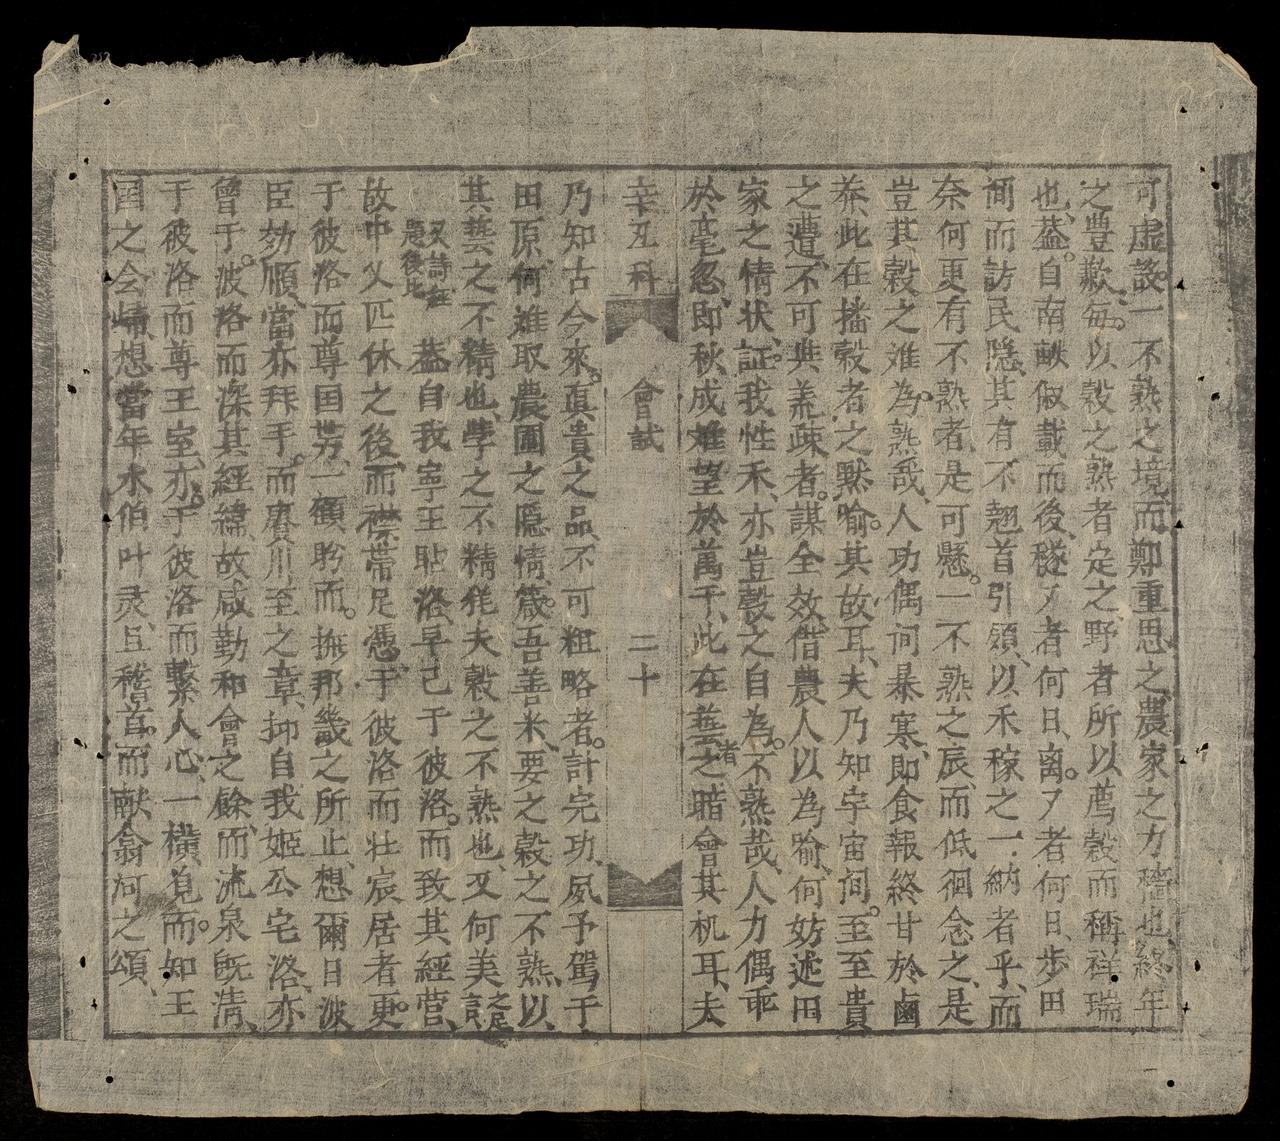 可虚談一不熟之境而鄭重思之農家之力穡也終年
之豊歉毎以穀之熟者定之野者所以薦穀而稱祥瑞
也蓋自南畝俶載而後穟乄者何日离乄者何日步田
間而訪民隐其有不翹首引領以禾稼之一納者乎而
奈何更有不熟者是可懸一不熟之辰而低徊念之是
豈其穀之难為熟哉人功偶间暴寒即食報終甘於鹵
莾此在播穀者之默喻其故耳夫乃知宇宙间至至貴
之遭不可與羕疎者謀全效借農人以為喻何妨述田
家之情状証我性禾亦豈穀之自為不熟哉人力偶乖
於毫忽即秋成难望於萬千此在藝之者暗會其机耳夫
辛亥科 會試 二十
乃知古今來真貴之品不可粗略者計完功夙予駕于
田原何难取農圃之隐情箴吾善米要之穀之不熟以
其藝之不精也學之不精猶夫穀之不熟也又何美之足訁
又詩在
蓋自我寧王貼洛早已于彼洛而致其經营
故中乂匹休之後而襟帶足憑于彼洛而壮宸居者更
于彼洛而尊囯势一顧盻而撫那畿之所止想爾日波
臣効順當亦拜手而賡川至之章抑自我姬公宅洛亦
曾于波洛而深其經緯故咸勤和會之餘而流泉旣清
于彼洛而尊王室亦于彼洛而繫人心一橫覓而知王
囯之会歸想當年水伯叶灵且稽首而献翕河之頌